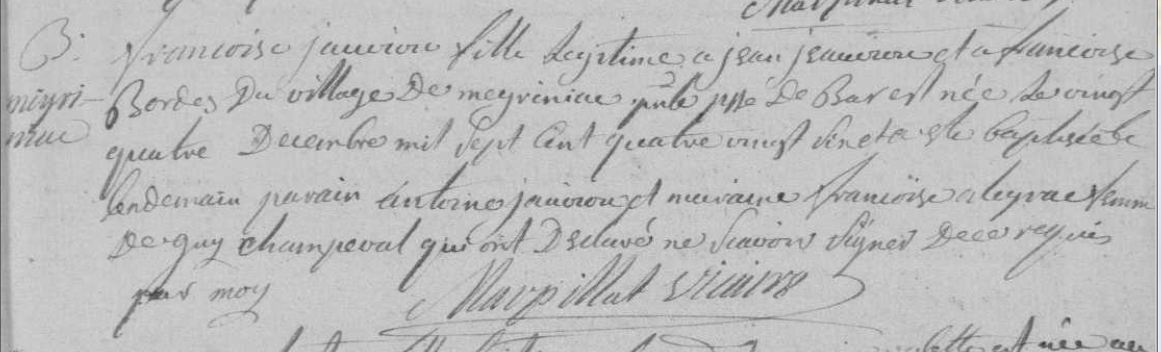 B.
meyri-
niac
francoise jauviou fille legitime a jean jeauviou et a francoise
Bordes Du village De meyriniac pnte psse De Bar est née Le vingt
quatre Decembre mil sept Cent quatre vingt sinct a esté baptisée le
lendemain parain antoine jauviou et maraine francoise aleyrac femme
De guy champeval qui ont Declaré ne scavoir signer De ce requis
par moy Marpillat vicaire
est née au